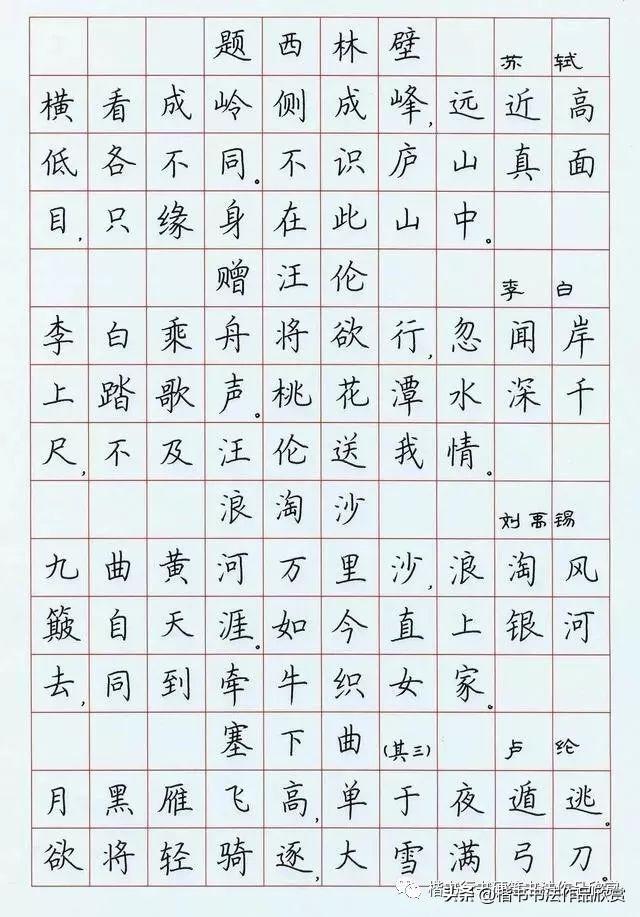 题西林壁 苏轼
横看成岭侧成峰,远近高
低各不同。不识庐山真面
目,只缘身在此山中。
赠汪伦 李白
李白乘舟将欲行,忽闻岸
上踏歌声。桃花潭水深千
尺,不及汪伦送我情。
浪淘沙 刘禹锡
九曲黄河万里沙,浪淘风
簸自天涯。如今直上银河
去,同到牵牛织女家。
塞下曲(其三) 卢纶
月黑雁飞高,单于夜遁逃。
欲将轻骑逐,大雪满弓刀。
头条@楷书书法作品欣赏